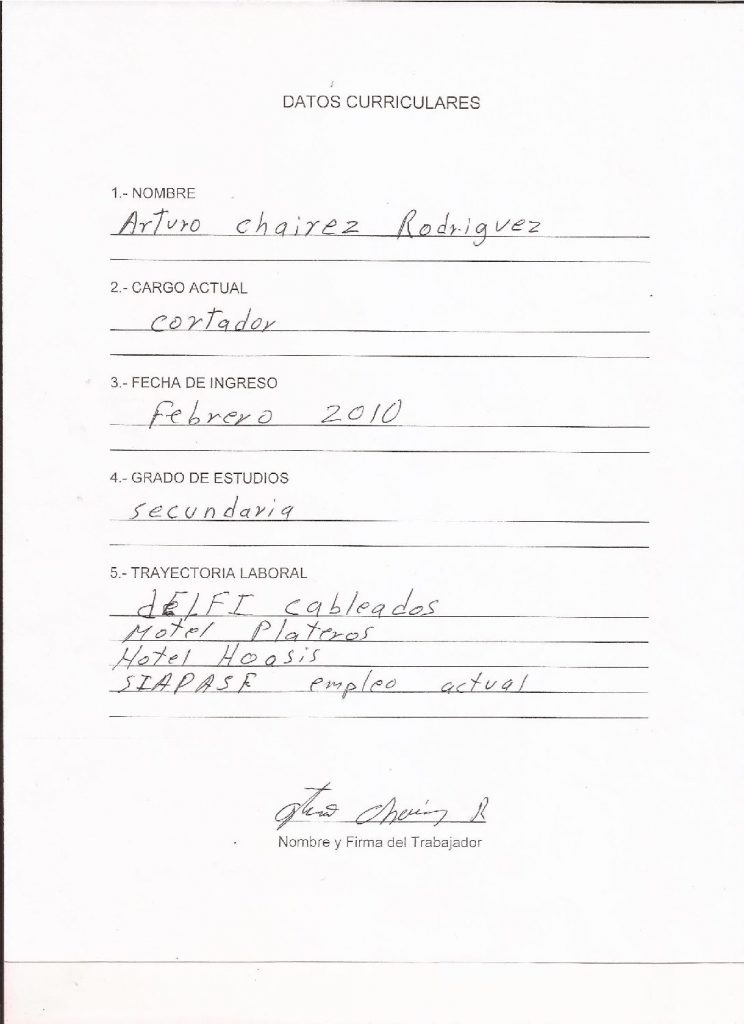 DATOS CURRICULARES
1.- NOMBRE
Arturo chairez Rodriguez
2.- CARGO ACTUAL
cortador
3.- FECHA DE INGRESO
Febrero 2010
4.- GRADO DE ESTUDIOS
secundaria
5.- TRAYECTORIA LABORAL
dELFI cableados
Motel Plateros
Hotel Hoasis
SIAPASF empleo actual
Nombre y Firma del Trabajador